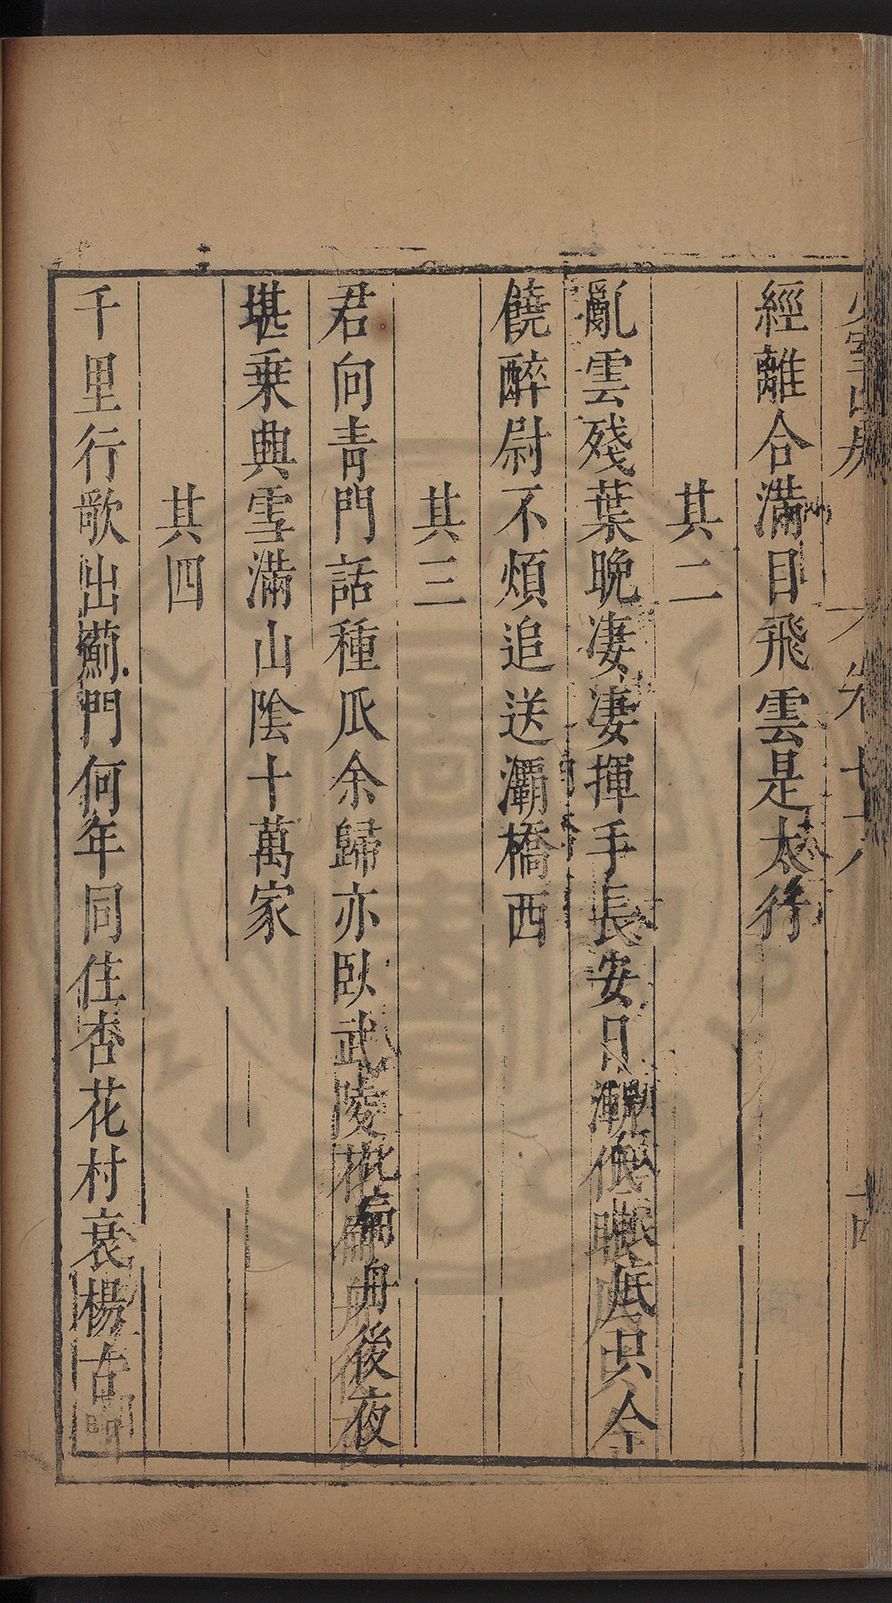 少室山房 卷七十八
經離合滿目飛雲是太行
其二
亂雲殘葉晚凄凄揮手長安日漸低眼底只今
饒醉尉不煩追送灞橋西
其三
君向靑門話種瓜余歸亦臥武陵花扁舟後夜
堪乗興雪滿山陰十萬家
其四
千里行歌出薊門何年同住杏花村衰楊古